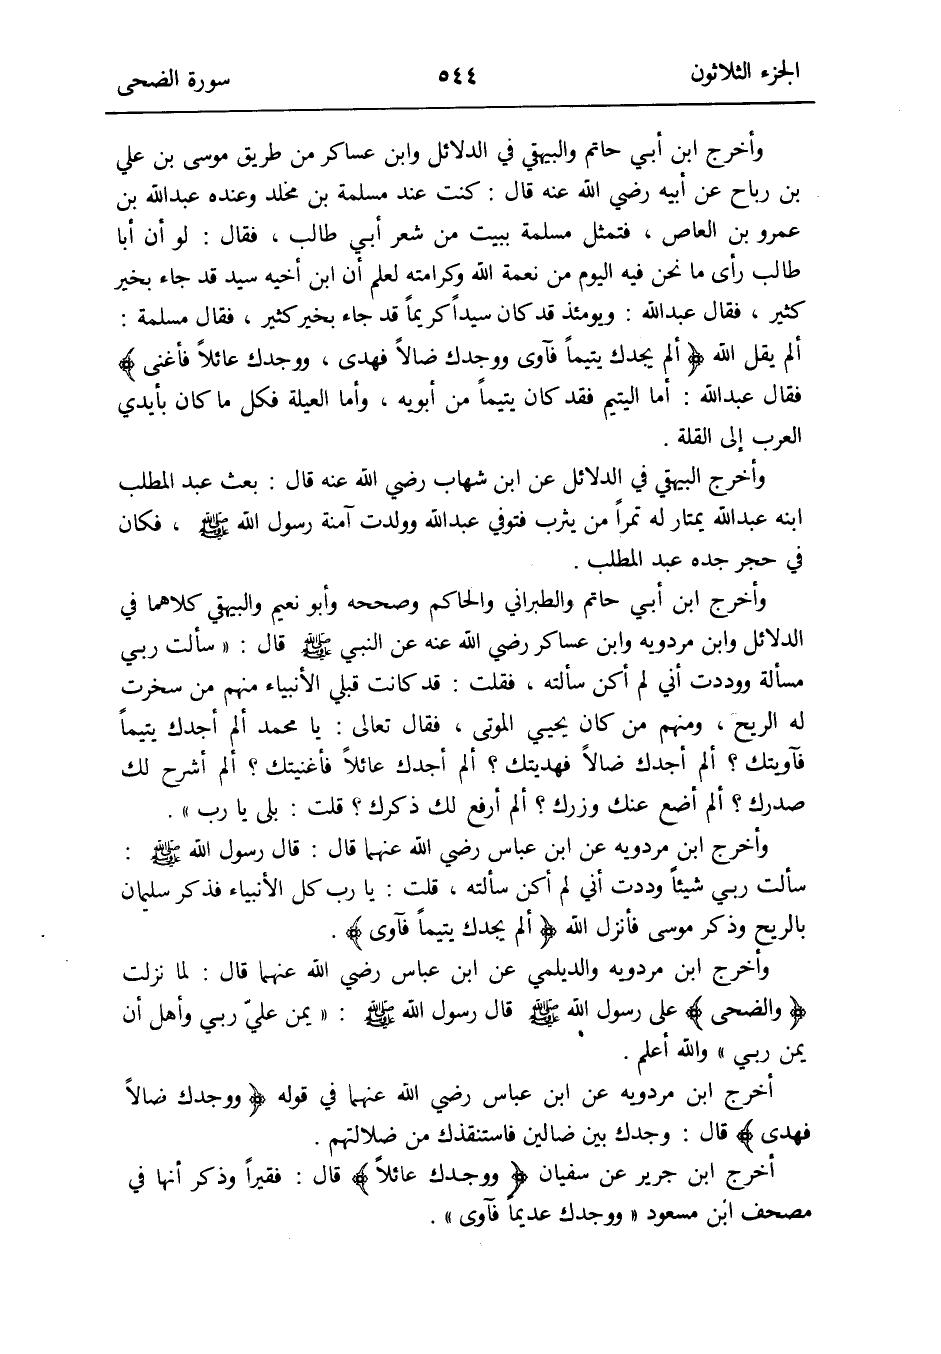 الجزء الثلاثون ٥٤٤ سورة الضحى
وأخرج ابن أبي حاتم والبيهقي في الدلائل وابن عساكر من طريق موسى بن علي
بن رباح عن أبيه رضي الله عنه قال : كنت عند مسلمة بن مخلد وعنده عبدالله بن
عمرو بن العاص ، فتمثل مسلمة ببيت من شعر أبي طالب ، فقال : لو أن أبا
طالب رأى ما نحن فيه اليوم من نعمة الله وكرامته لعلم أن ابن أخيه سيد قد جاء بخير
كثير ، فقال عبدالله : ويومئذ قد كان سيداً كريماً قد جاء بخير كثير ، فقال مسلمة :
ألم يقل الله ﴿ ألم يجدك يتيماً فآوى ووجدك ضالاً فهدى ، ووجدك عائلاً فأغنى ﴾
فقال عبدالله : أما اليتيم فقد كان يتيماً من أبويه ، وأما العيلة فكل ما كان بأيدي
العرب إلى القلة .
وأخرج البيهقي في الدلائل عن ابن شهاب رضي الله عنه قال : بعث عبد المطلب
ابنه عبدالله يمتار له تمراً من يثرب فتوفي عبدالله وولدت آمنة رسول الله ﷺ ، فكان
في حجر جده عبد المطلب .
وأخرج ابن أبي حاتم والطبراني والحاكم وصححه وأبو نعيم والبيهقي كلاهما في
الدلائل وابن مردويه وابن عساكر رضي الله عنه عن النبي ﷺ قال : « سألت ربي
مسألة ووددت أني لم أكن سألته ، فقلت : قد كانت قبلي الأنبياء منهم من سخرت
له الريح ، ومنهم من كان يحيي الموتى ، فقال تعالى : يا محمد ألم أجدك يتيماً
فآويتك ؟ ألم أجدك ضالاً فهديتك ؟ ألم أجدك عائلاً فأغنيتك ؟ ألم أشرح لك
صدرك ؟ ألم أضع عنك وزرك ؟ ألم أرفع لك ذكرك ؟ قلت : بلى يا رب » .
وأخرج ابن مردويه عن ابن عباس رضي الله عنهما قال : قال رسول الله ﷺ :
سألت ربي شيئاً وددت أني لم أكن سألته ، قلت : يا رب كل الأنبياء فذكر سليمان
بالريح وذكر موسى فأنزل الله ﴿ ألم يجدك يتيماً فآوى ﴾ .
وأخرج ابن مردويه والديلمي عن ابن عباس رضي الله عنهما قال : لما نزلت
﴿ والضحى ﴾ على رسول الله ﷺ قال رسول الله ﷺ : « يمن عليّ ربي وأهل أن
يمن ربي » والله أعلم .
أخرج ابن مردويه عن ابن عباس رضي الله عنهما في قوله ﴿ ووجدك ضالاً
فهدى ﴾ قال : وجدك بين ضالين فاستنقذك من ضلالتهم .
أخرج ابن جرير عن سفيان ﴿ ووجدك عائلاً ﴾ قال : فقيراً وذكر أنها في
مصحف ابن مسعود « ووجدك عديماً فآوى » .